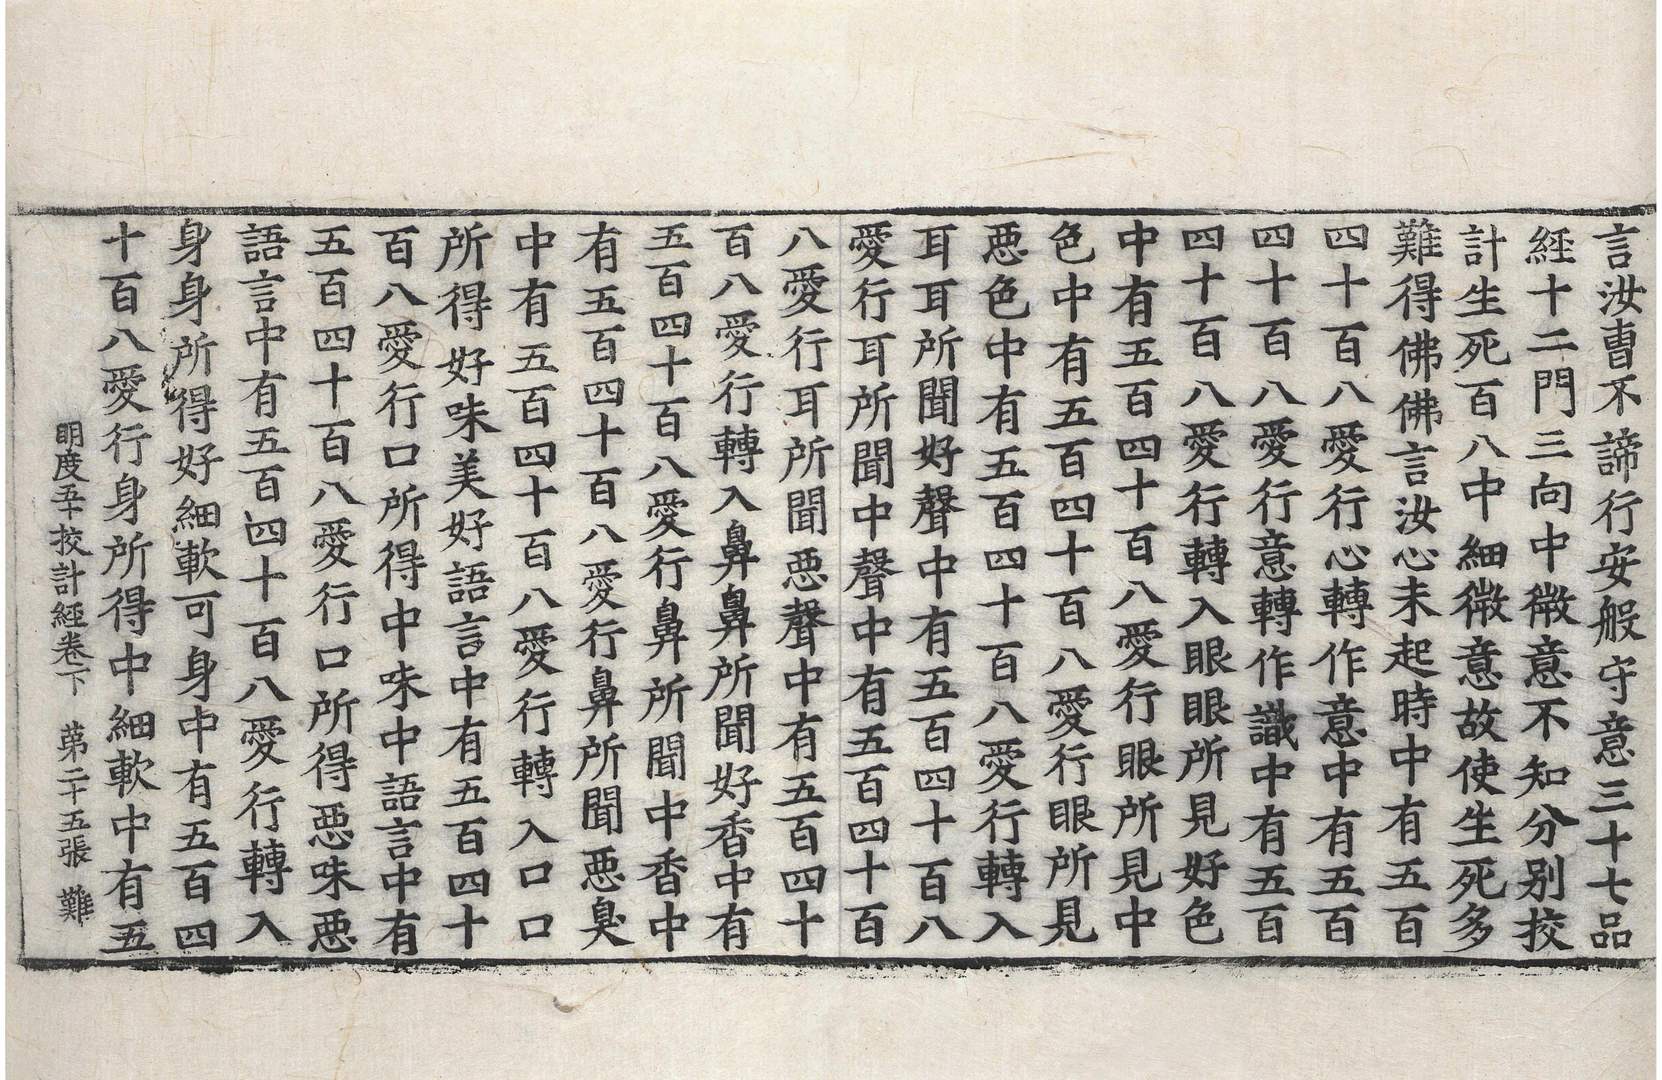 言汝曹不諦行安般守意三十七品
經十二門三向中微意不知分別挍
計生死百八中細微意故使生死多
難得佛佛言汝心未起時中有五百
四十百八愛行心轉作意中有五百
四十百八愛行意轉作識中有五百
四十百八愛行轉入眼眼所見好色
中有五百四十百八愛行眼所見中
色中有五百四十百八愛行眼所見
惡色中有五百四十百八愛行轉入
耳耳所聞好聲中有五百四十百八
愛行耳所聞中聲中有五百四十百
八愛行耳所聞惡聲中有五百四十
百八愛行轉入鼻鼻所聞好香中有
五百四十百八愛行鼻所聞中香中
有五百四十百八愛行鼻所聞惡臭
中有五百四十百八愛行轉入口口
所得好味美好語言中有五百四十
百八愛行口所得中味中語言中有
五百四十百八愛行口所得惡味惡
語言中有五百四十百八愛行轉入
身身所得好細軟可身中有五百四
十百八愛行身所得中細軟中有五
明度五十挍計經卷下 第二十五張 難